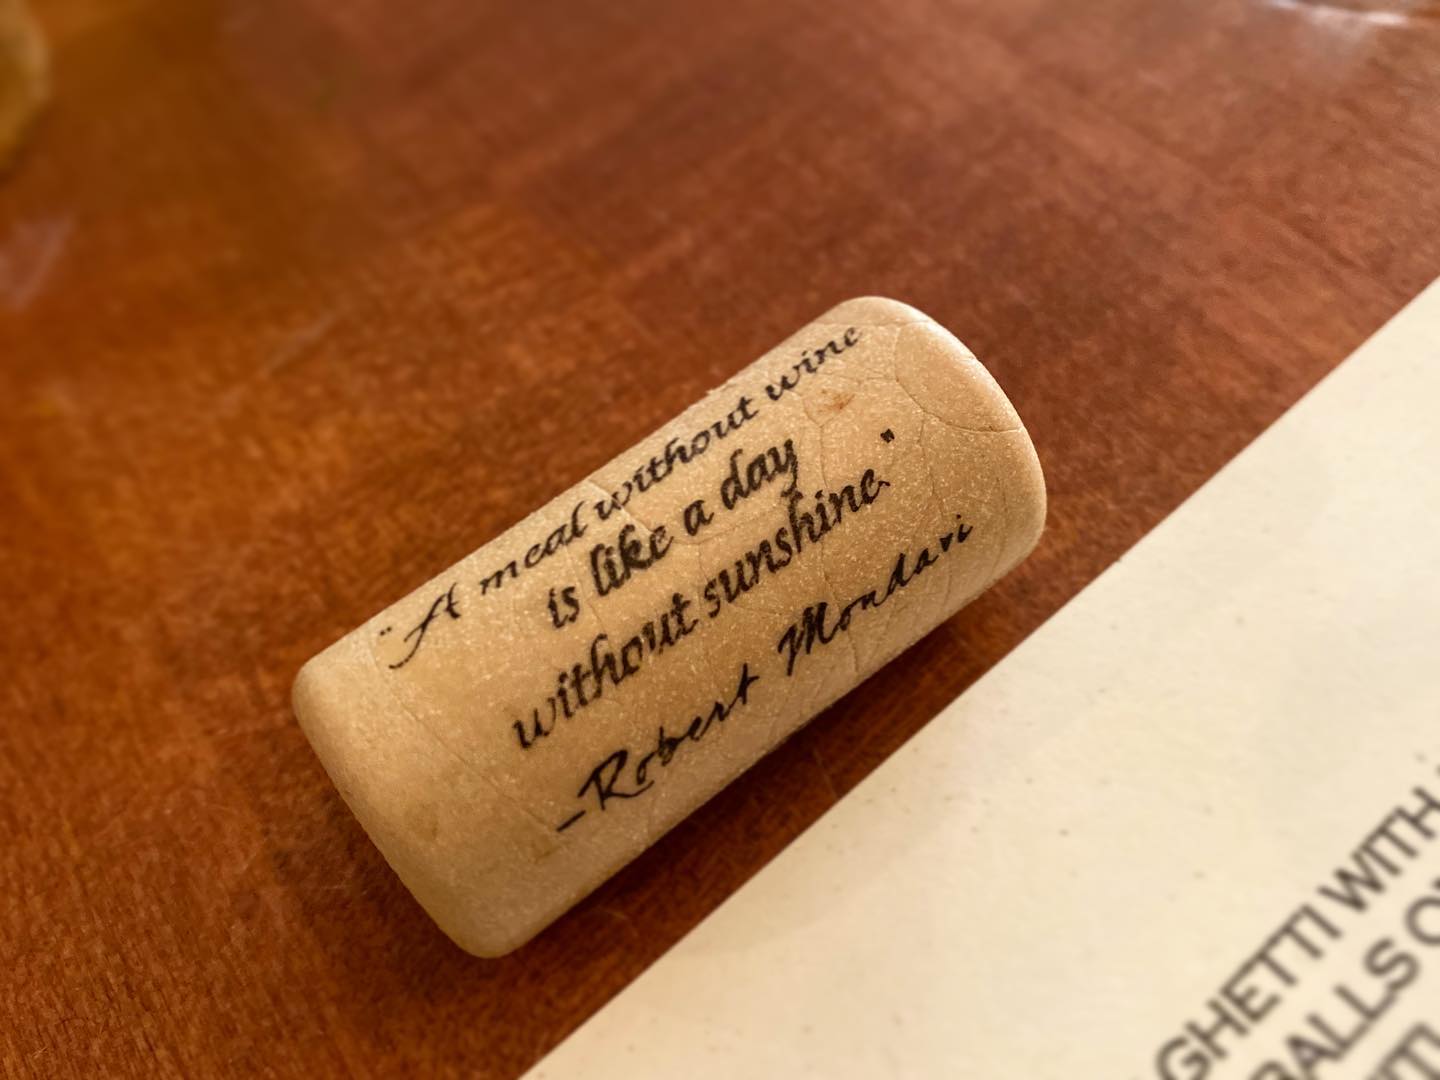 "A meal without wine
is like a day
without sunshine."
–Robert Mondavi
GHETTI WITH
BALLS